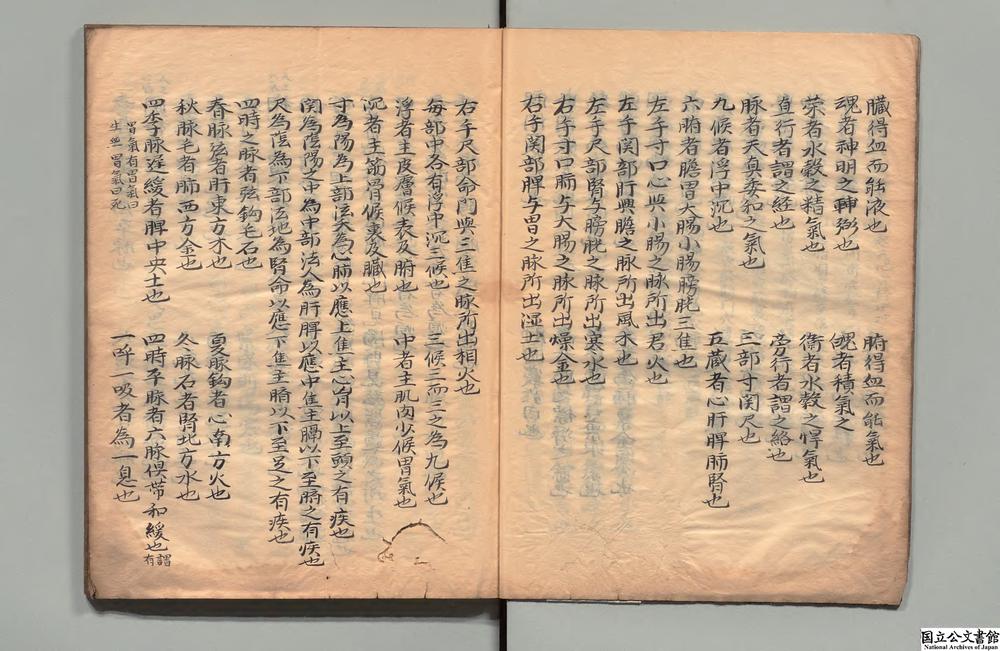 臓得血而能液也　腑得血而能氣也
魂者神明之輔弼也　魄者積氣之
荣者水穀之精氣也　衛者水穀之悍氣也
直行者謂之経也　旁行者謂之絡也
脉者天真委和之氣也　三部寸関尺也
九候者浮中沉也　五蔵者心肝脾肺腎也
六腑者膽胃大腸小腸膀胱三焦也
左手寸口心与小腸之脉所出君火也
左手関部肝與膽之脉所出風木也
左手尺部腎与膀胱之脉所出寒水也
右手寸口肺与大腸之脉所出燥金也
右手関部脾与胃之脉所出湿土也
右手尺部命門與三焦之脉所出相火也
每部中各有浮中沉三候也為三候三而三之為九候也
浮者主皮膚候表及腑也中者主肌肉少候胃氣也
沉者主筋骨候裏及臓也
寸為陽為上部法天為心肺以應上焦主心胷以上至頭之有疾也
関為陰陽之中為中部法人為肝脾以應中焦主膈以下至臍之有疾也
尺為陰為下部法地為腎命以應下焦主臍以下至足之有疾也
四時之脉者弦鈎毛石也
春脉弦者肝東方木也　夏脉鈎者心南方火也
秋脉毛者肺西方金也　冬脉石者腎北方水也
四季脉遅緩者脾中央土也　四時平脉者六脉俱帯和緩也謂有
胃氣有胃氣曰生無胃氣曰死　一呼一吸者為一息也
国立公文書館
National Archives of Japan